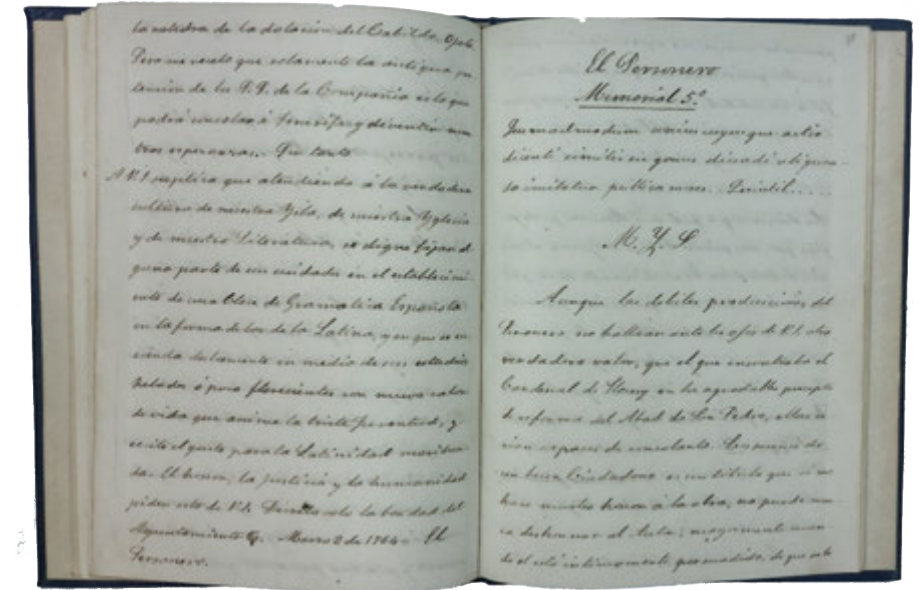 la catedra de la dotacion del Cabildo
Pero me recelo que solamente la antigua
tencion de los P.P. de la Compañia es lo que
podrá consolar á Tenerife y de nuestras
tras esperanzas. Por tanto
A V.S. suplica que atendiendo á la verdadera
cultura de nuestra Ysla, de nuestra Yglesia
y de nuestra Literatura, se digne fijar al
guna parte de sus cuidados en el establecimi
ento de una Clase de Gramatica Española
en la forma de los de la Latina, y en que se en
cienda dulcemente en medio de sus estudios
helados ó poco florecientes un nuevo calor
de vida que anime la triste juventud, y
excite el gusto para la Latinidad moribun
da. El honor, la justicia y la humanidad
piden esto de V.S. Decrételo la bondad del
Ayuntamiento &. Marzo 2 de 1764 = El
Personero.
El Personero
Memorial 5.º
publica
M. Y. S
Aunque las debiles producciones del
Personero no hallasen ante los ojos de V.S. otro
verdadero valor, que el que encontraba el
Cardenal de Fleury en los agradables
de reforma del Abad de San Pedro,
capaces de consolarlo.
un buen Ciudadano es un titulo que si no
hace mucho honor á la obra, no puede nun
ca deshonrar al Autor; mayormente cuan
do el está intimamente persuadido, de que este